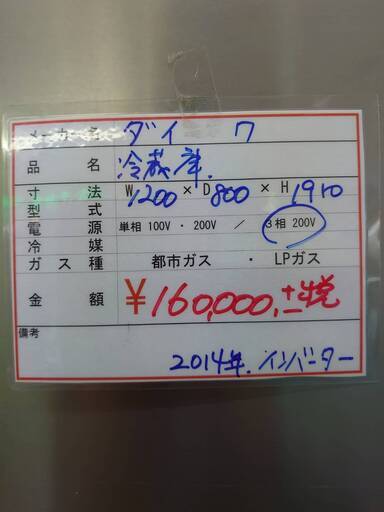 メーカー名 ダイワ
品名 冷蔵庫.
寸法 W1200×D800×H1910
型式
電源 単相 100V ・ 200V ／ 3相 200V
冷媒
ガス種 都市ガス ・ LPガス
金額 ¥160,000,-+税
備考
2014年.インバーター